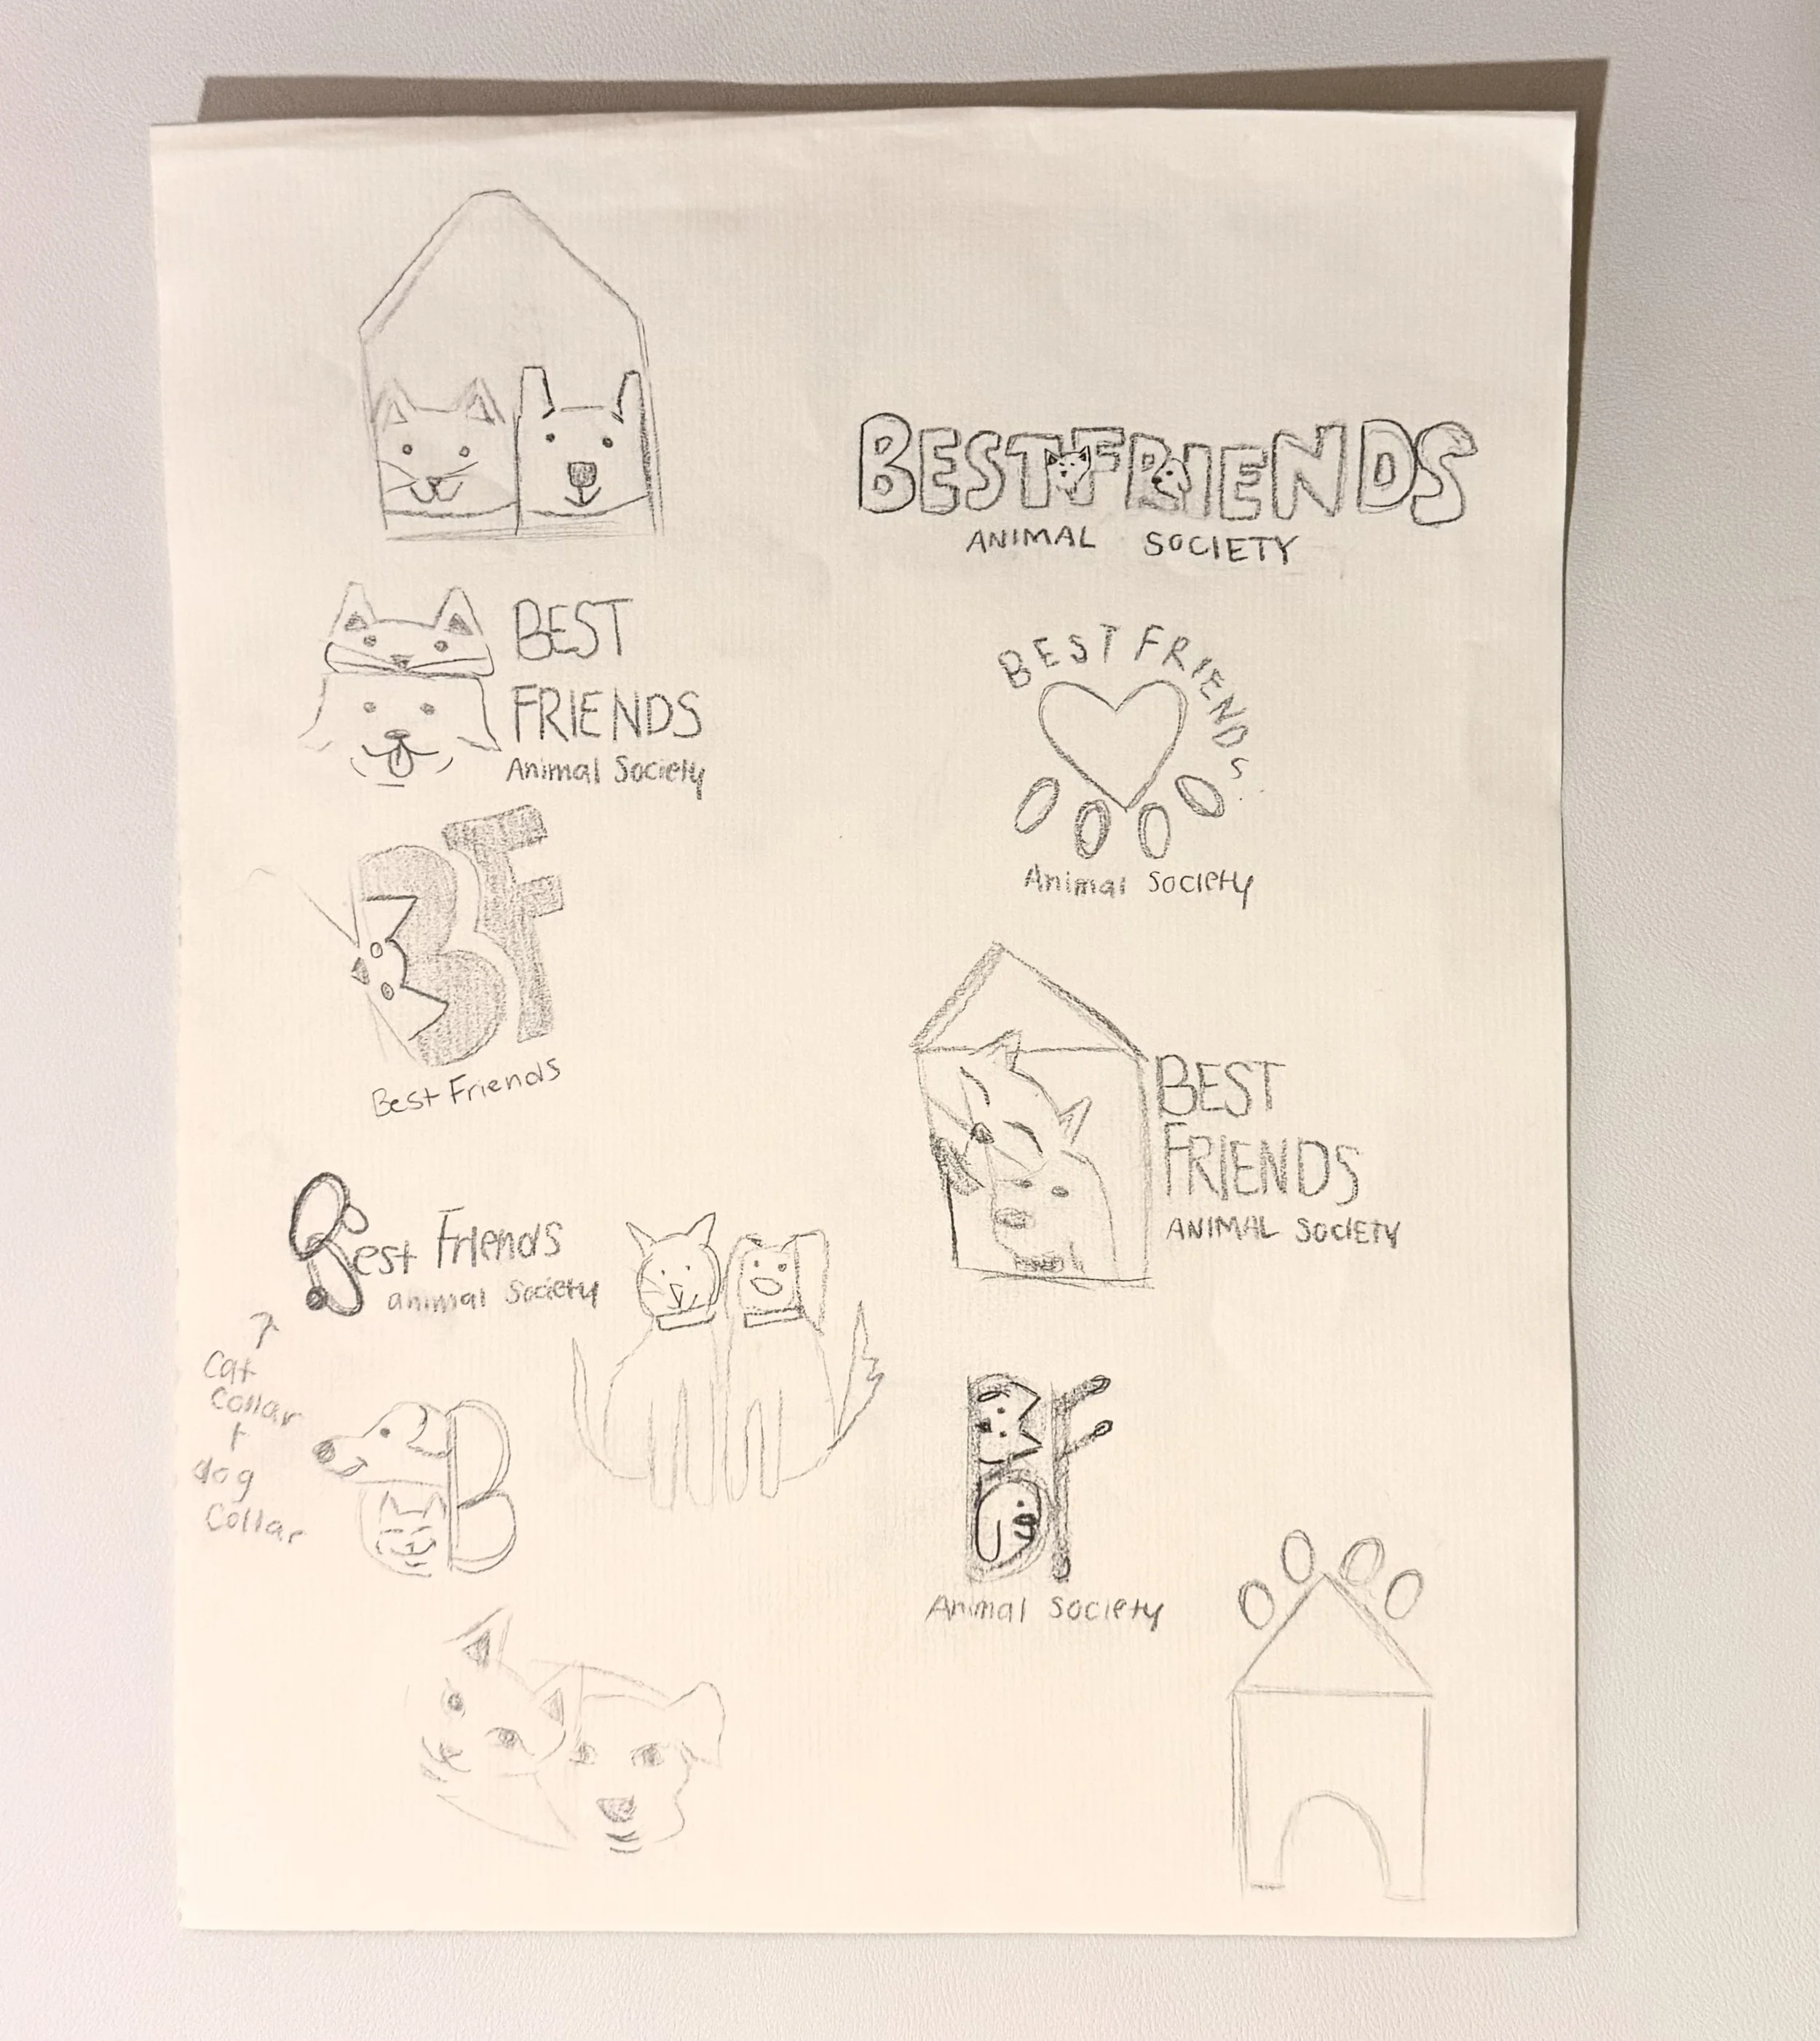 BEST FRIENDS
ANIMAL SOCIETY
BEST
FRIENDS
Animal Society
BEST FRIENDS
Animal Society
BF
Best Friends
BEST
FRIENDS
ANIMAL SOCIETY
Best Friends
animal Society
Cat
Collar
+
dog
Collar
B
BF
Animal Society